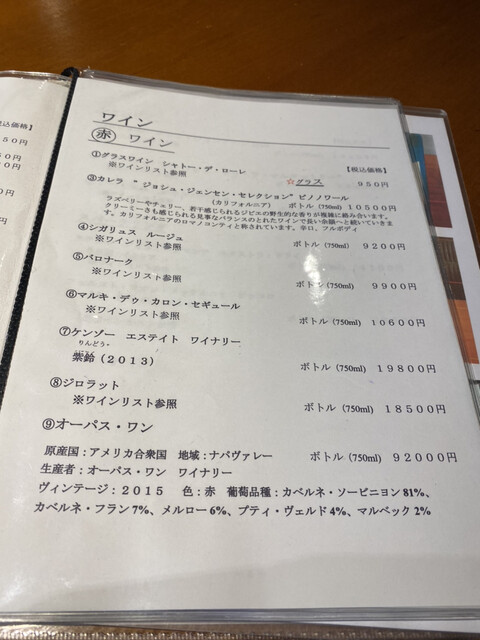 ワイン
赤 ワイン
【税込価格】
①グラスワイン シャトー・デ・ローレ
※ワインリスト参照 ☆グラス 950円
③カレラ “ジョシュ・ジェンセン・セレクション”ピノノワール
(カリフォルニア) ボトル(750ml) 10500円
ラズベリーやチェリー、若干感じられるジビエの野生的な香りが複雑に絡み合います。
クリーミーさも感じられる見事なバランスのとれたワインで長い余韻へと続いていきま
す。カリフォルニアのロマノコンティと称されています。辛口、フルボディ
④シガリュス ルージュ
※ワインリスト参照 ボトル(750ml) 9200円
⑤バロナーク
※ワインリスト参照 ボトル(750ml) 9900円
⑥マルキ・デゥ・カロン・セギュール
※ワインリスト参照 ボトル(750ml) 10600円
⑦ケンゾー エステイト ワイナリー
りんどう・
紫鈴(2013) ボトル(750ml) 19800円
⑧ジロラット
※ワインリスト参照 ボトル(750ml) 18500円
⑨オーパス・ワン
原産国:アメリカ合衆国 地域:ナパヴァレー ボトル(750ml) 92000円
生産者:オーパス・ワン ワイナリー
ヴィンテージ:2015 色:赤 葡萄品種:カベルネ・ソービニヨン81%、
カベルネ・フラン7%、メルロー6%、プティ・ヴェルド4%、マルベック2%